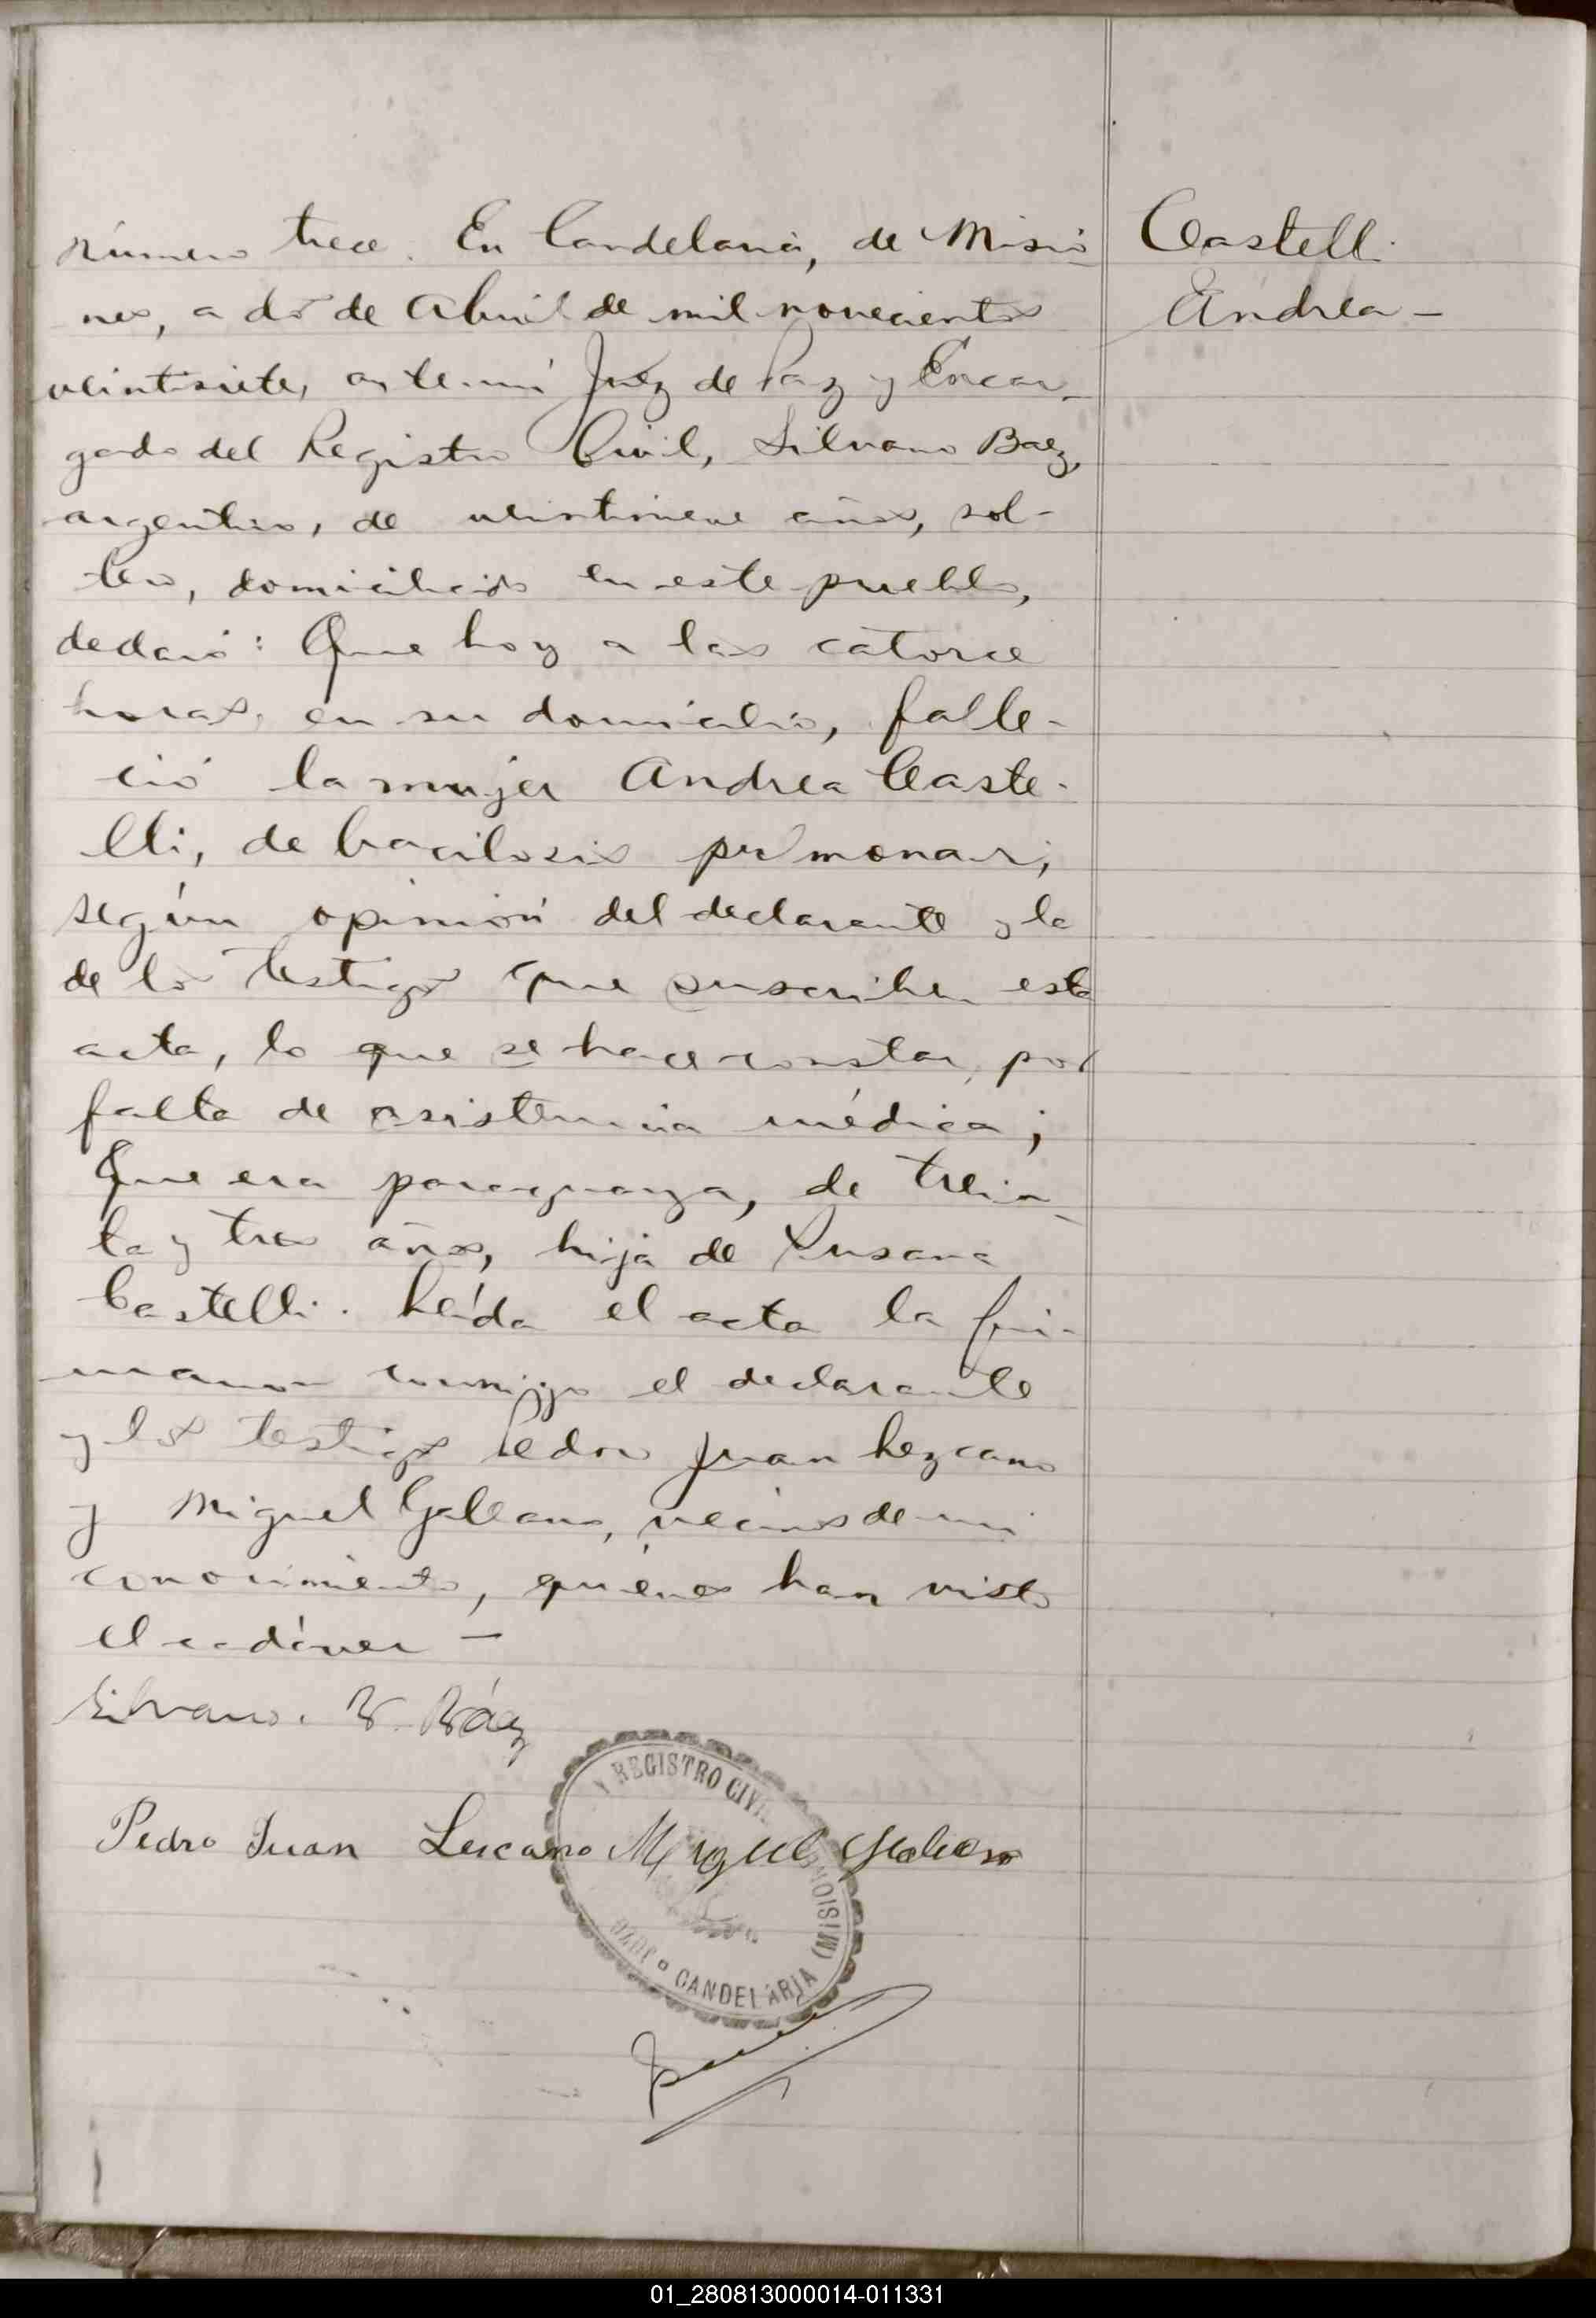 número trece. En Candelaria, de Misio-
nes, a dos de Abril de mil novecientos
veintisiete, ante mí Juez de Paz y Encar-
gado del Registro Civil, Silvano Baez,
argentino, de veintinueve años, sol-
tero, domiciliado en este pueblo,
declaró: Que hoy a las catorce
horas, en su domicilio, falle-
ció la mujer Andrea Caste-
lli, de bacilosis pulmonar,
según opinión del declarante y la
de los testigos que suscriben esta
acta, lo que se hace constar, por
falta de asistencia médica;
Que era paraguaya, de trein-
ta y tres años, hija de Susana
Castelli. Leída el acta la fir-
maron conmigo el declarante
y los testigos Pedro Juan Lezcano
y Miguel Galeano, vecinos de mi
conocimiento, quienes han visto
el cadáver —
Castelli
Andrea —
Silvano. B. Báez
Pedro Juan Lescano Miguel Galeano
Y REGISTRO CIVIL
JUZGO • CANDELARIA (MISIONE
01_280813000014-011331